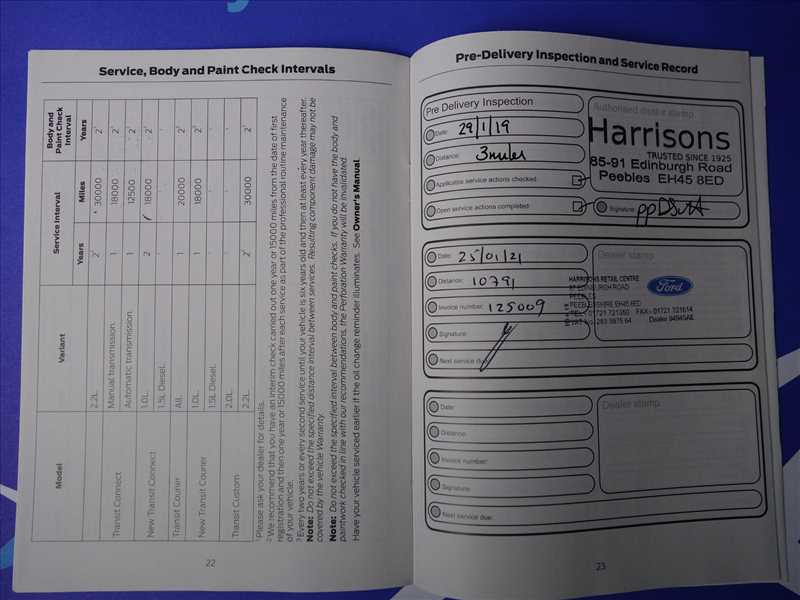 Service, Body and Paint Check Intervals
Model Variant Service Interval Body and Paint Check Interval
Years Miles Years
2.2L 2 30000 2
Transit Connect Manual transmission. 1 18000 2
Automatic transmission. 1 12500 2
New Transit Connect 1.0L. 2 18000 2
1.5L Diesel.
Transit Courier All. 1 20000 2
New Transit Courier 1.0L. 1 18000 2
1.5L Diesel.
Transit Custom 2.0L
2.2L 2 30000 2
1 Please ask your dealer for details.
2 We recommend that you have an interim check carried out one year or 15000 miles from the date of first
registration and then one year or 15000 miles after each service as part of the professional routine maintenance
of your vehicle.
3 Every two years or every second service until your vehicle is six years old and then at least every year thereafter.
Note: Do not exceed the specified distance interval between services. Resulting component damage may not be
covered by the vehicle Warranty.
Note: Do not exceed the specified interval between body and paint checks. If you do not have the body and
paintwork checked in line with our recommendations, the Perforation Warranty will be invalidated.
Have your vehicle serviced earlier if the oil change reminder illuminates. See Owner's Manual.
22
Pre-Delivery Inspection and Service Record
Pre Delivery Inspection
Date: 29/1/19
Distance: 3 miles
Applicable service actions checked:
Open service actions completed:
Authorised dealer stamp
Harrisons
TRUSTED SINCE 1925
85-91 Edinburgh Road
Peebles EH45 8ED
Signature:
Date: 25/01/21
Distance: 10791
Invoice number: 125009
Signature:
Next service due:
Dealer stamp
HARRISONS RETAIL CENTRE
EDINBURGH ROAD
PEEBLES
PEEBLESSHIRE EH45 8ED
01721 721350 FAX - 01721 721614
Ford
Date:
Distance:
Invoice number:
Signature:
Next service due:
Dealer stamp
23